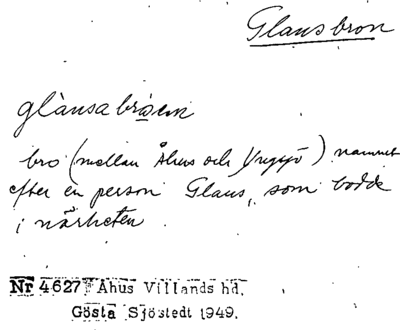 Glansbron
glànsabråen
bro (mellan Åhus och Yngsjö) namnet
efter en person Glans, som bodde
i närheten.
Nr 4627 Åhus Villands hd.
Gösta Sjöstedt 1949.